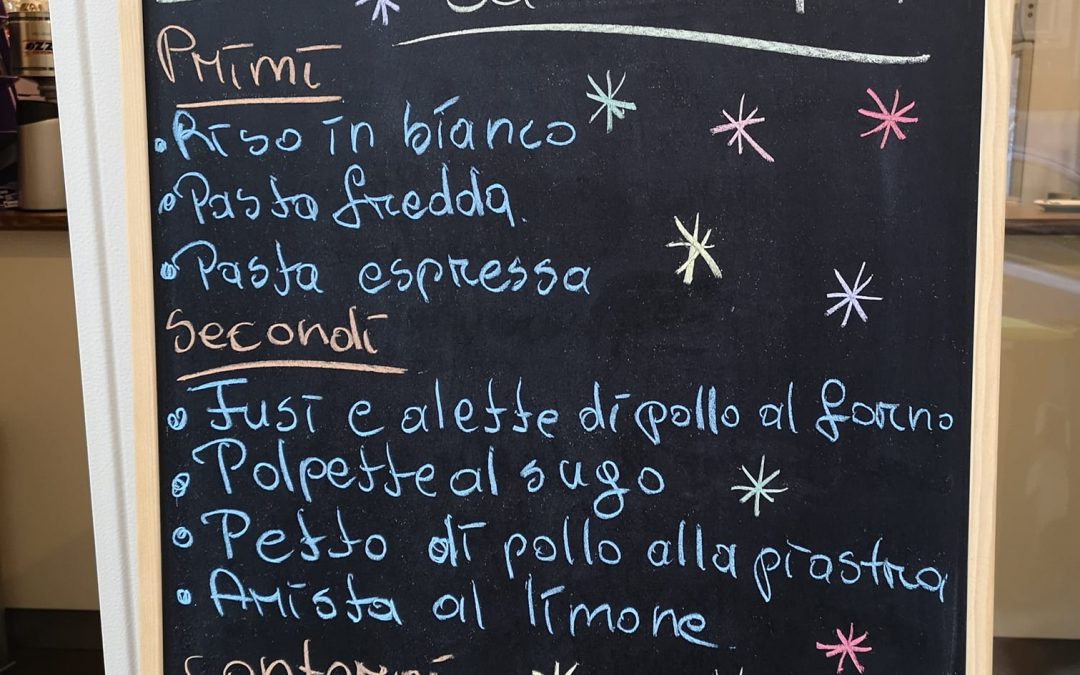 Primi
Riso in bianco
Pasta fredda.
Pasta espressa
Secondi
Fusi e alette di pollo al forno
Polpette al sugo
Petto di pollo alla piastra
Arista al limone
Contorni